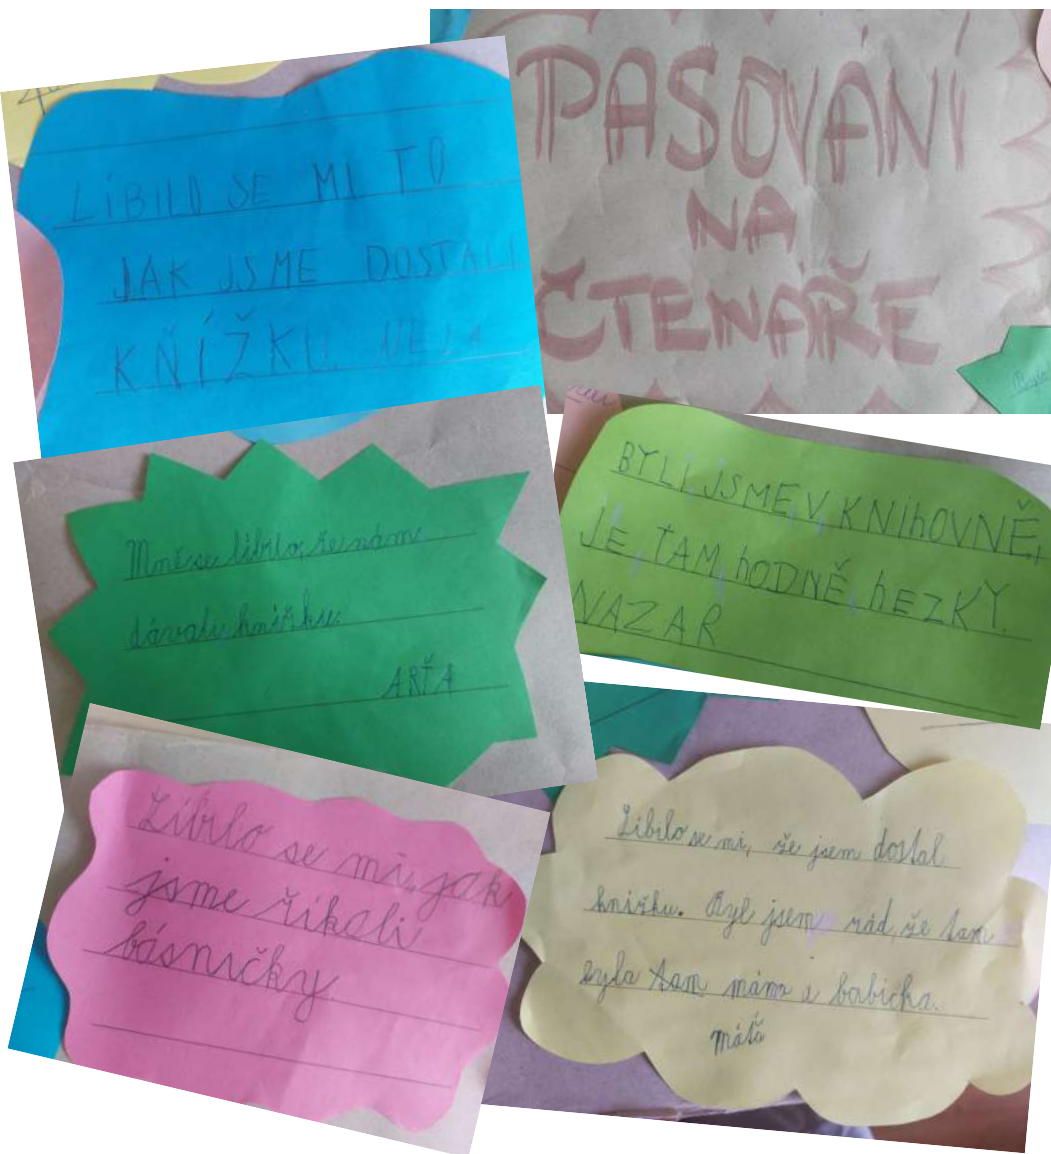 PASOVÁNÍ
NA
ČTENÁŘE
LÍBILO SE MI TO
JAK JSME DOSTALI
KŇÍŽKU.
Mně se líbilo, že nám
dávali knížku.
ARŤA
BYLI JSME V KNIhOVNĚ,
JE TAM hODNĚ hEZKY.
NAZAR
Líbilo se mi, jak
jsme říkali
básničky.
Líbilo se mi, že jsem dostal
knížku. Byl jsem rád, že tam
byla tam máma i babička.
Máťa